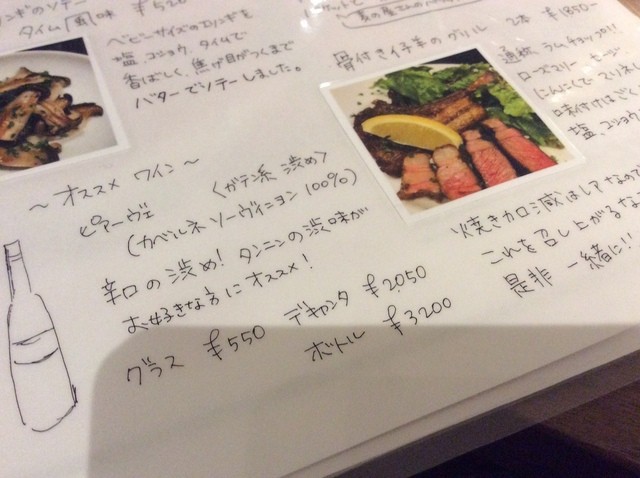 ンギのソテー
タイム風味 ¥520
ベビーサイズのエリンギを
塩、コショウ、タイムで
香ばしく、焦が目がつくまで
バターでソテーしました。
骨付き仔羊のグリル 2本 ¥1850-
通称 ラムチョップ!!
ローズマリー
にんにくでマリネし
味付けはご
塩、コショウ
焼き加減はレアなので
これを召し上がるな
是非 一緒に!!
〜オススメ ワイン〜
ピアーヴェ 〈ガテ系 渋め〉
(カベルネ ソーヴィニヨン 100%)
辛口の渋め! タンニンの渋味が
お好きな方にオススメ!
グラス ¥550
デキャンタ ¥2050
ボトル ¥3200